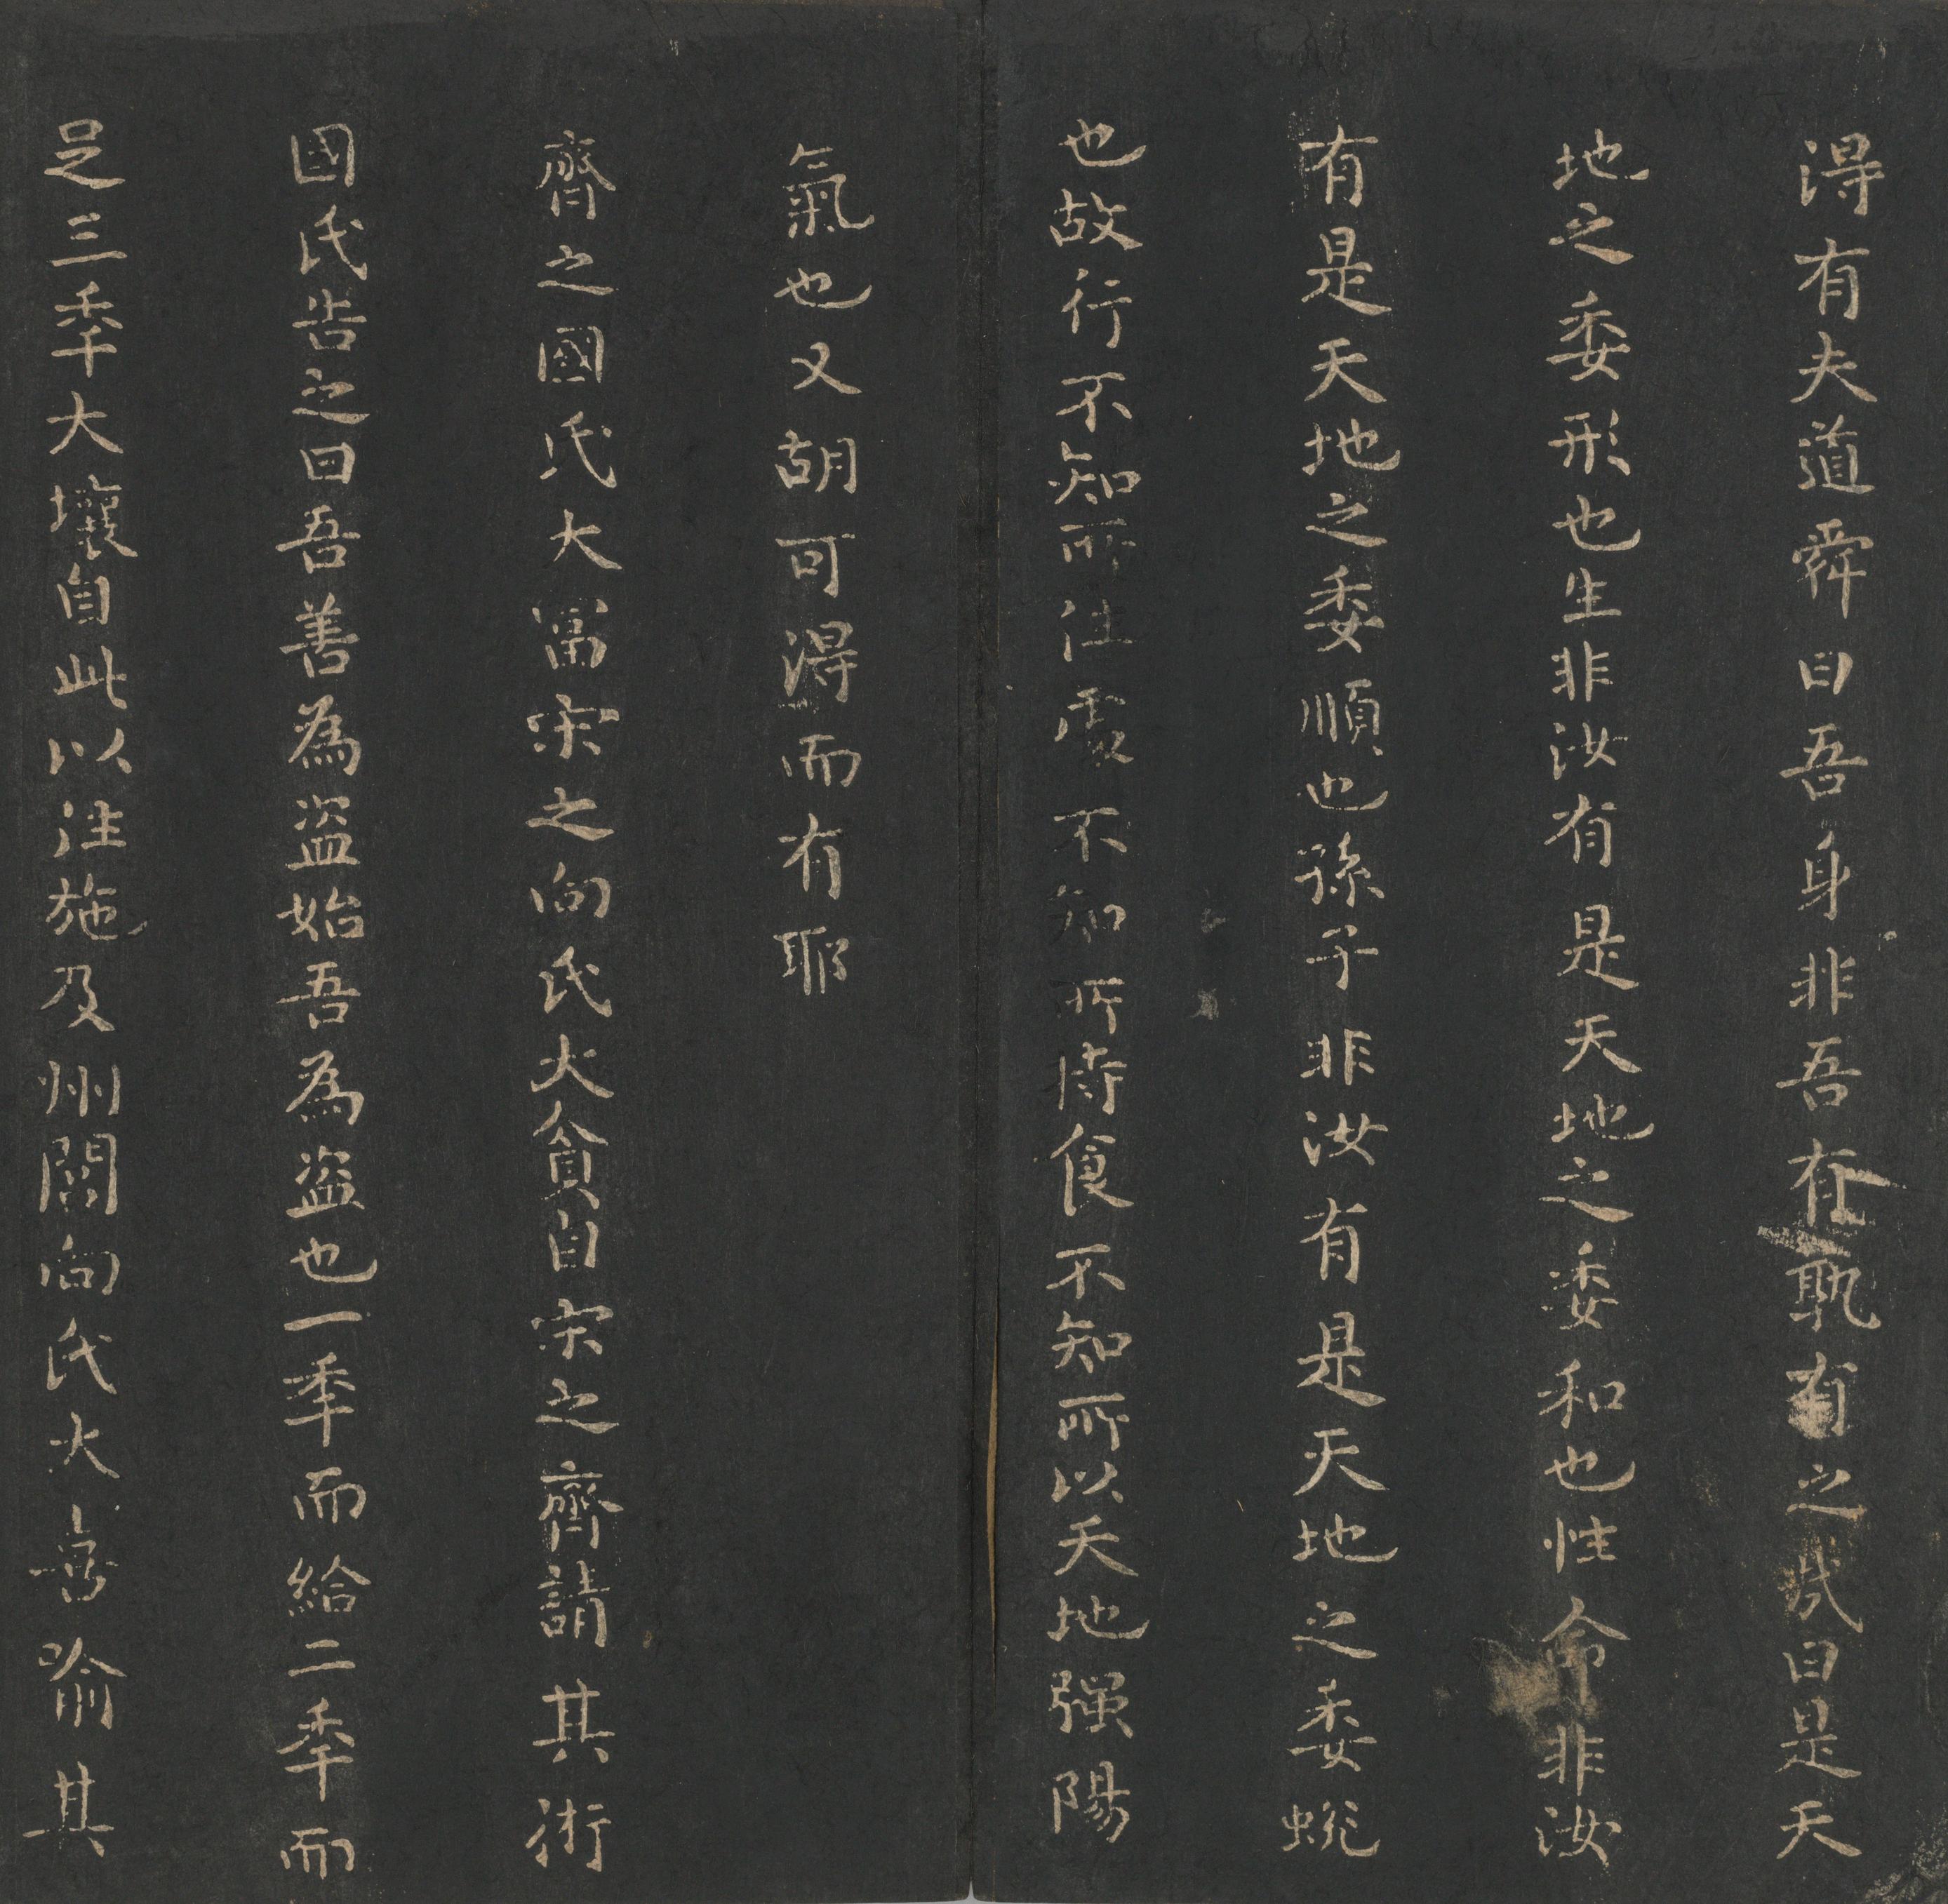 得有夫道舜曰吾身非吾有孰有之㢤曰是天
地之委形也生非汝有是天地之委和也性命非汝
有是天地之委順也孫子非汝有是天地之委蛻
也故行不知所往處不知所持食不知所以天地强陽
氣也又胡可得而有耶
齊之國氏大富宋之向氏大貧自宋之齊請其術
國氏告之曰吾善為盜始吾為盜也一年而給二年而
足三年大壤自此以往施及州閭向氏大喜喻其